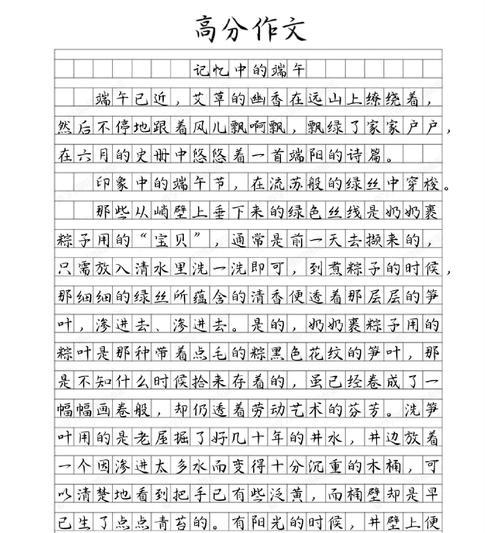 高分作文
记忆中的端午
端午已近，艾草的幽香在远山上缭绕着，
然后不停地跟着风儿飘啊飘，飘绿了家家户户，
在六月的史册中悠悠着一首端阳的诗篇。
印象中的端午节，在流苏般的绿丝中穿梭。
那些从峭壁上垂下来的绿色丝线是奶奶裹
粽子用的“宝贝”，通常是前一天去撷来的，
只需放入清水里洗一洗即可，到煮粽子的时候，
那细细的绿丝所蕴含的清香便透着那层层的笋
叶，渗进去、渗进去。是的，奶奶裹粽子用的
粽叶是那种带着点毛的粽黑色花纹的笋叶，那
是不知什么时候拾来存着的，虽已经卷成了一
幅幅画卷般，却仍透着劳动艺术的芬芳。洗笋
叶用的是老屋掘了好几十年的井水，井边放着
一个因渗进太多水而变得十分沉重的木桶，可
以清楚地看到把手已有些泛黄，而桶壁却是早
已生了点点青苔的。有阳光的时候，井壁上便